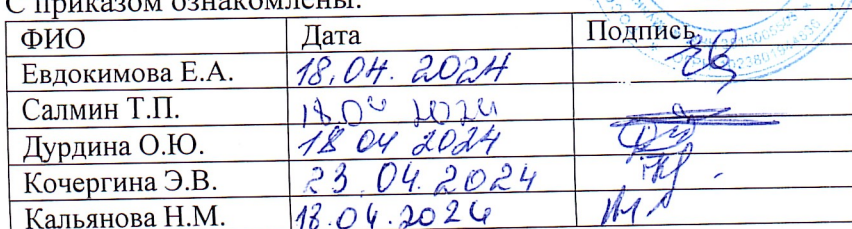 С приказом ознакомлены:
ФИО Дата Подпись
Евдокимова Е.А. 18.04.2024
Салмин Т.П. 18.04 2024
Дурдина О.Ю. 18 04 2024
Кочергина Э.В. 23.04.2024
Кальянова Н.М. 18.04.2024